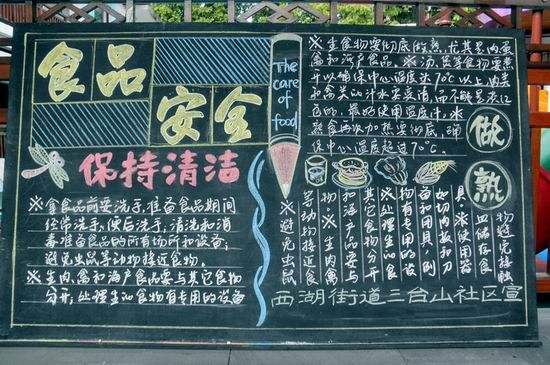 食品
安全
保持清洁
※拿食品前要洗手,准备食品期间
经常洗手,便后洗手,清洗和消
毒准备食品的所有场所和设备;
避免虫鼠等动物接近食物。
※生肉,禽和海产食品要与其它食物
分开;处理生的食物有专用的设备
The
care
of
food
※生食物要彻底做熟,尤其是肉蛋
禽和海产食品。※汤、煲等食物要煮
开以确保中心温度达70℃以上,肉类
和禽类的汁水要变清,而不能是淡红
色的,最好使用温度计。※
熟食再次加热要彻底,确
保中心温度超过70℃。
做
熟
物避免接触
皿储存食
具,※使用器
如切肉板的刀
备和用具,例
物有专用的设
※处理生的食
其它食物分开
和海产品要与
物※生肉、禽
等动物接近食
※避免虫鼠
西湖街道三台山社区宣